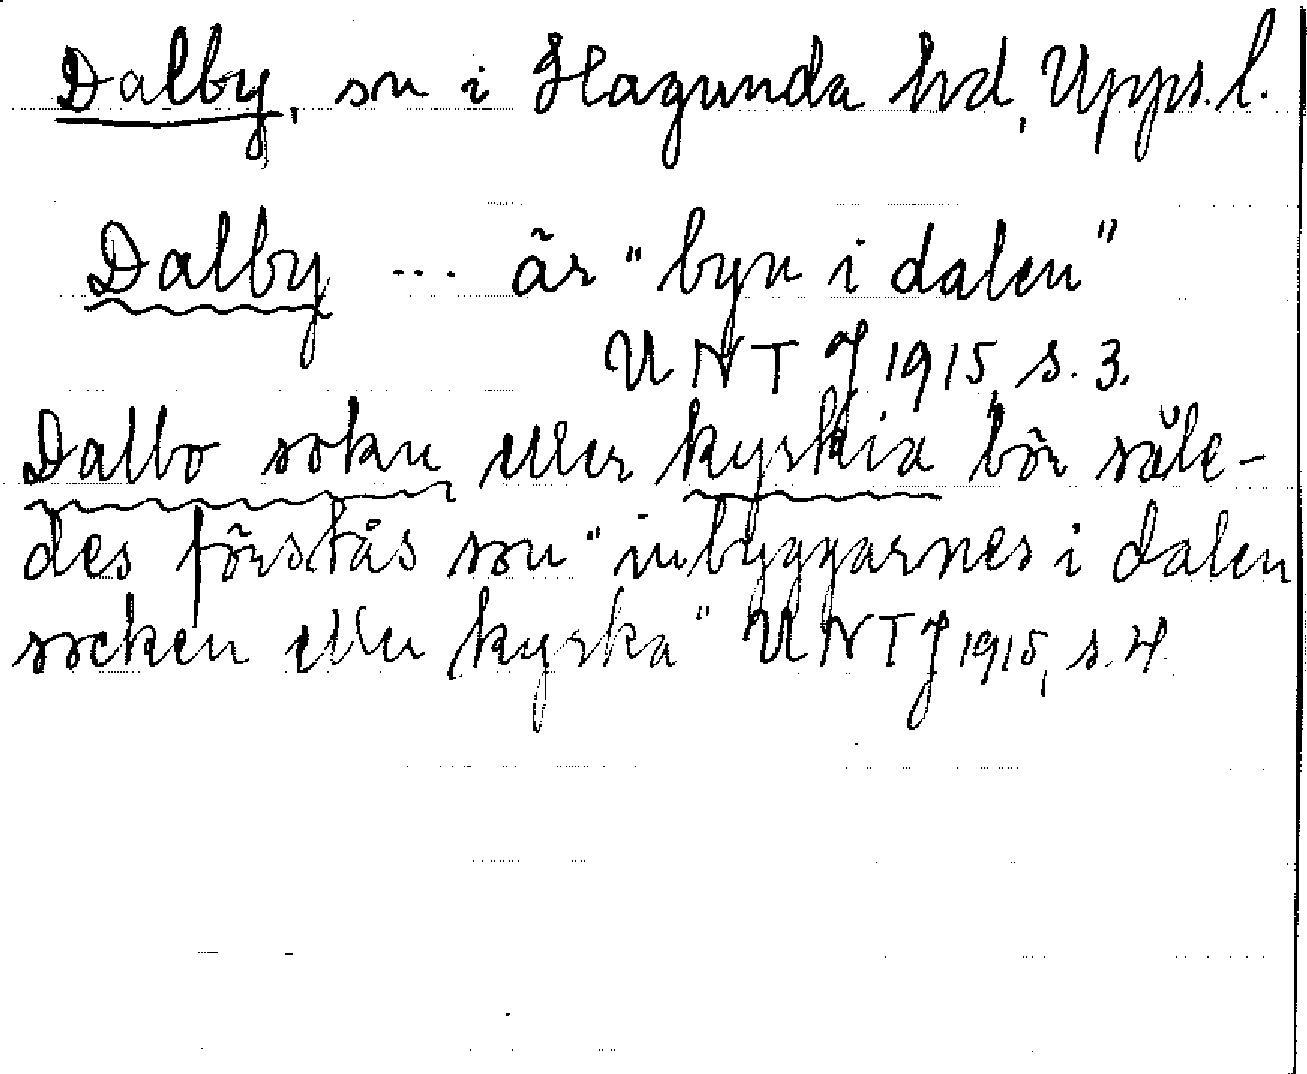 Dalby, sn i Hagunda hd, Upps. l.
Dalby ... är "byn i dalen"
UNTJ 1915 s. 3.
Dalbo sokn eller kyrkia bör såle-
des förstås som "inbyggarnes i dalen
socken eller kyrka" UNTJ 1915, s. 4.